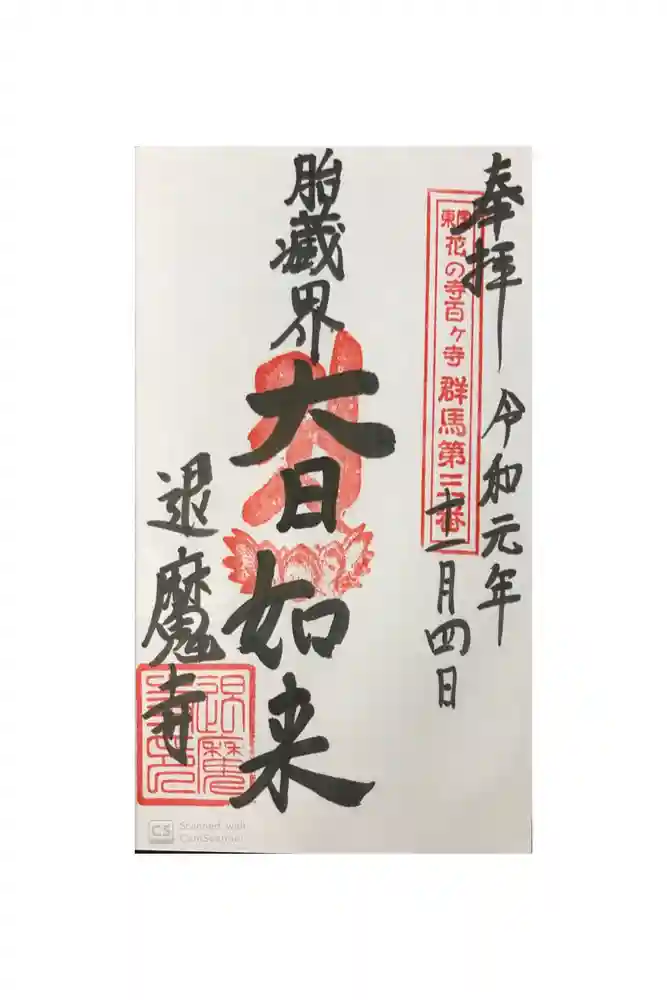 奉拝
令和元年
十二月四日
東国花の寺百ヶ寺 群馬第三番
胎蔵界
大日如来
退魔寺
CS
Scanned with
CamScanner